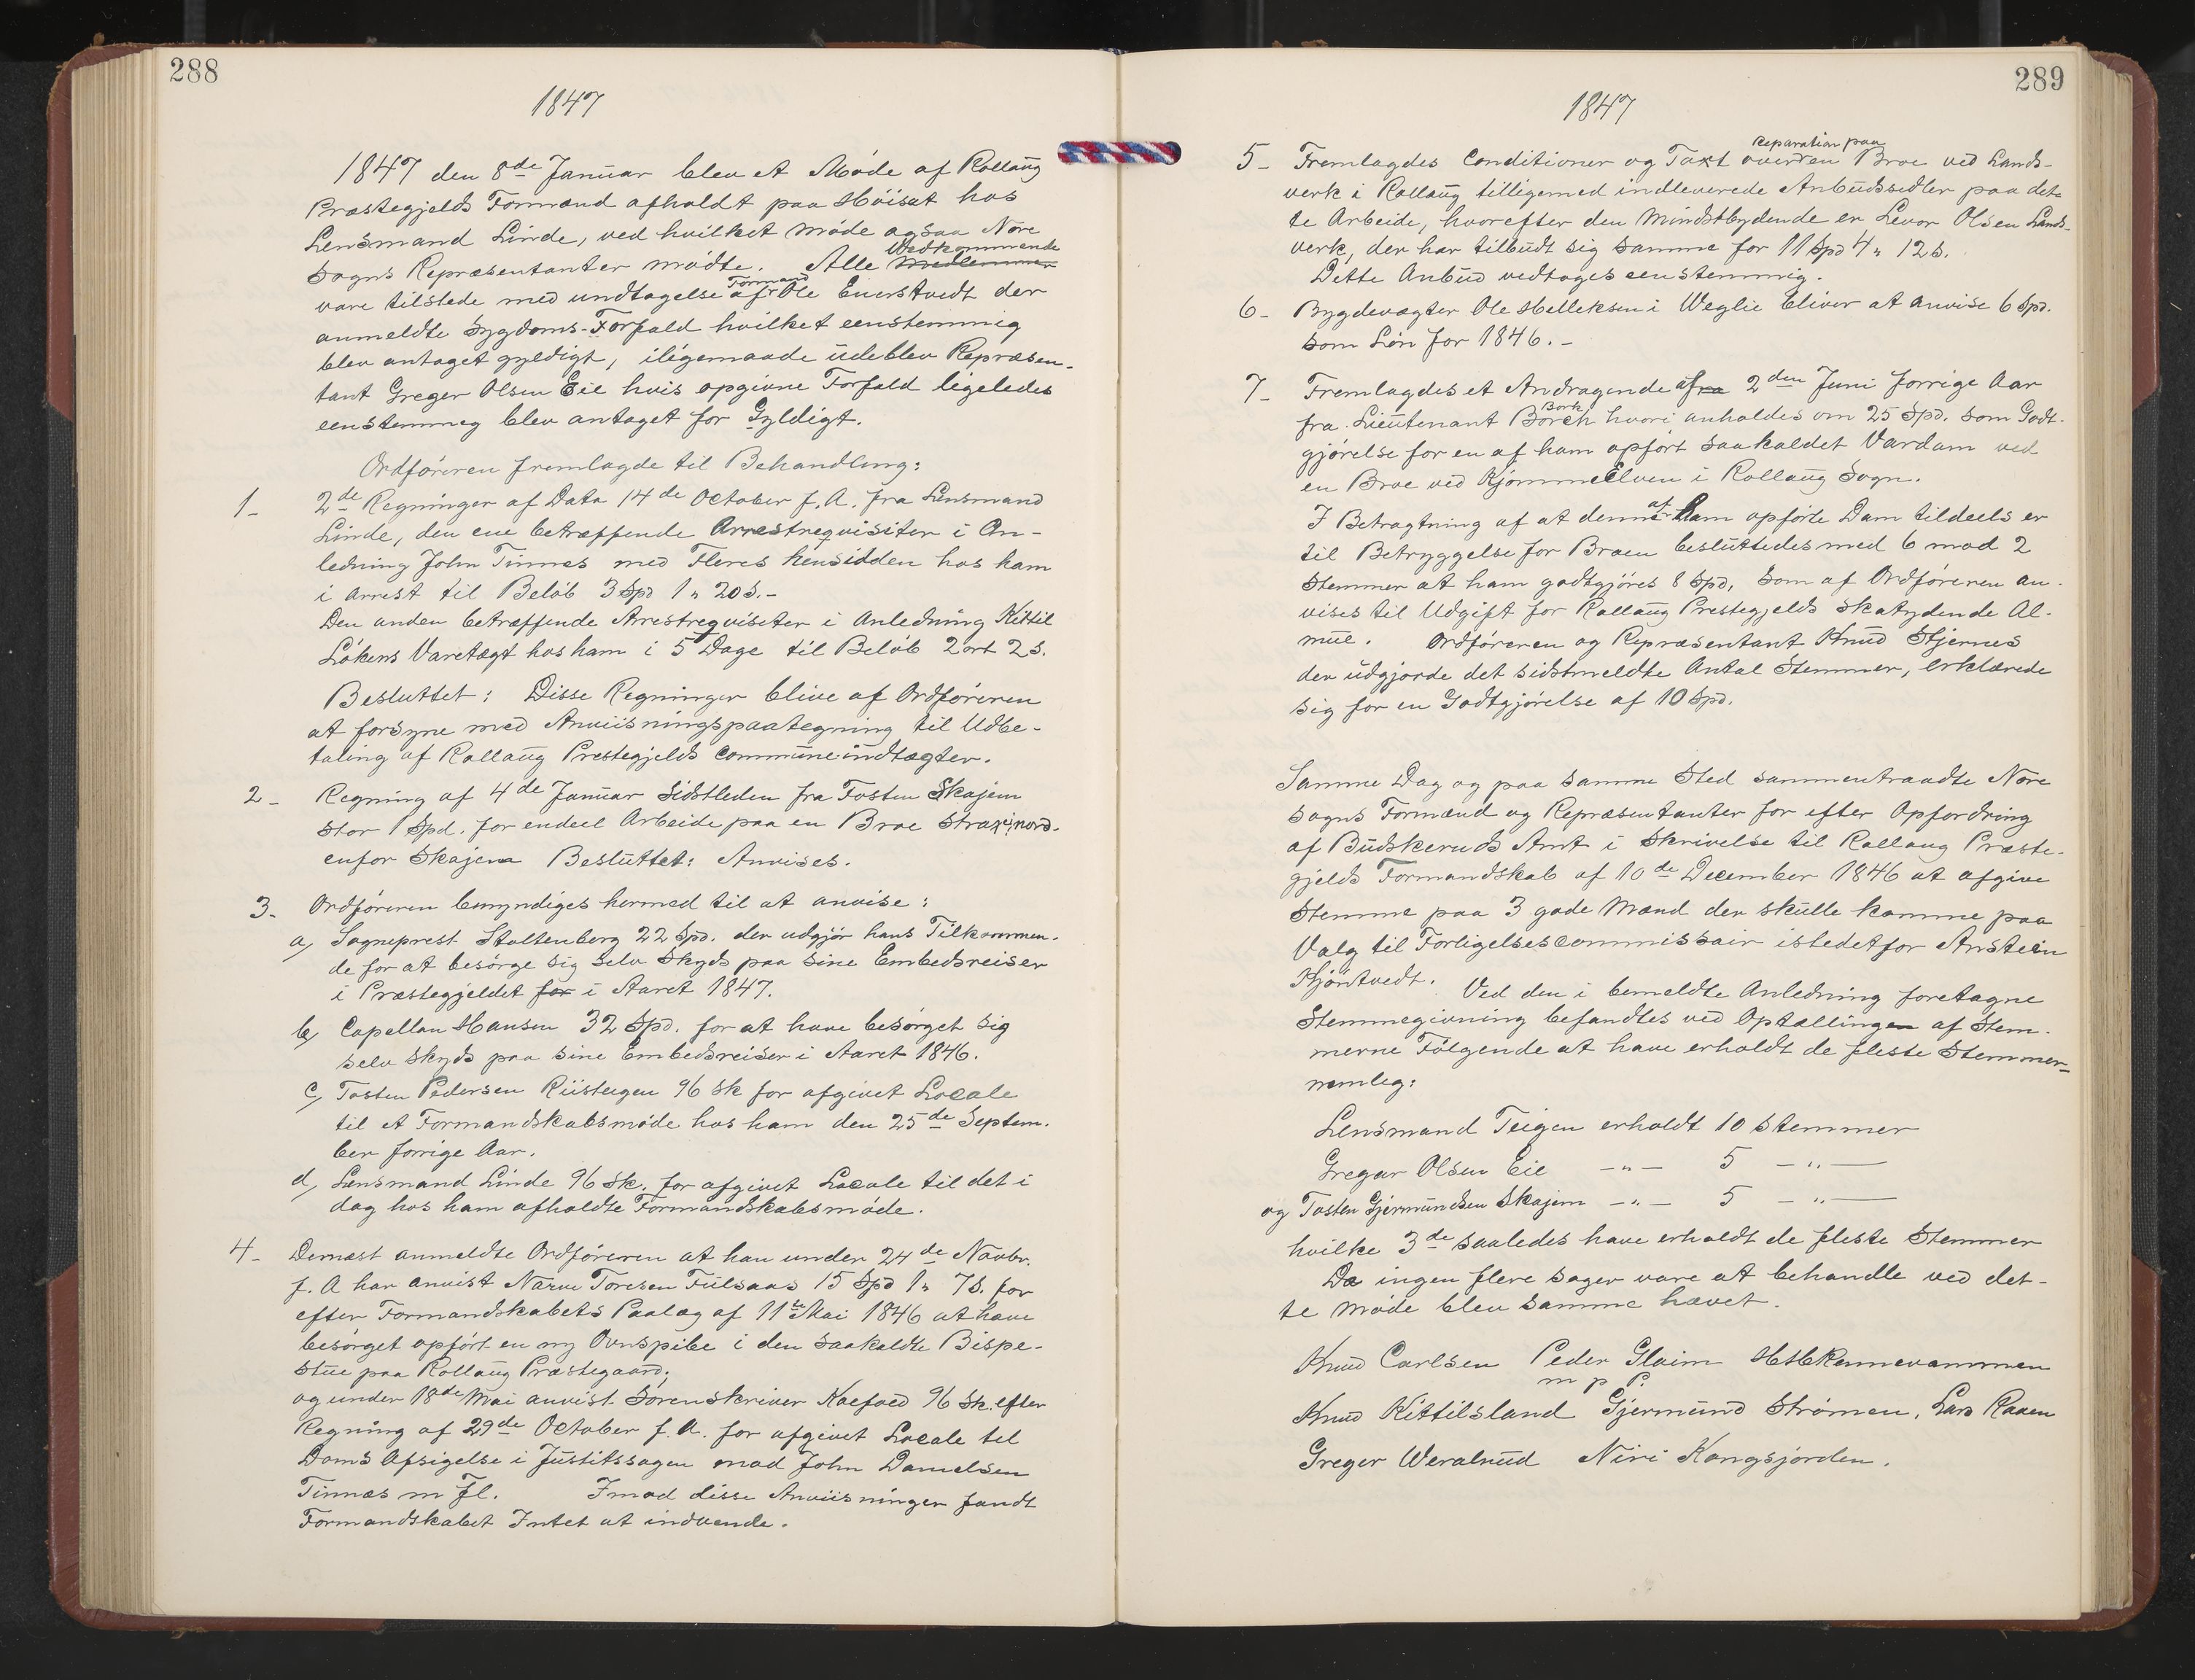 288
1847
1847 den 8de Januar blev et Møde af Rollaug
Præstegjelds Formænd afholdt paa Høisæt hos
Lensmand Linde, ved hvilket møde ogsaa Nore
Sogns Repræsentanter mødte. Alle Vedkommende Medlemmer
vare tilstede med undtagelse af Formand Ole Enerstvedt der
anmeldte Sygdoms-Forfald hvilket eenstemmig
blev antaget gyldigt, iligemaade udeblev Repræsen-
tant Greger Olsen Eie hvis opgivne Forfald ligeledes
eenstemmeg blev antaget for Gyldigt.
Ordføreren fremlagde til Behandling:
1_ 2de Regninger af Data 14de October f.A. fra Lensmand
Linde, den ene betræffende Arrestreqvisiter i An-
ledning John Tinnes med Fleres hensidden hos ham
i arrest til Beløb 3 Spd 1 " 20 s.-
Den anden betræffende Arrestreqvisiter i Anledning Kittil
Løkens Varetægt hos ham i 5 Dage til Beløb 2 ort 2 s.
Besluttet: Disse Regninger blive af Ordføreren
at forsyne med Anviisningspaategning til Udbe-
taling af Rollaug Prestegjelds communeindtægter.
2_ Regning af 4de Januar sidstleden fra Tosten Skajem
stor 1 Spd. for endeel Arbeide paa en Broe strax nord-
enfor Skajem Besluttet: Anvises.
3_ Ordføreren bemyndiges hermed til at anvise:
a, Sogneprest Stoltenberg 22 Spd. der udgjør hans Tilkommen-
de for at besørge sig selv Skyds paa sine Embedsreiser
i Præstegjeldet for i Aaret 1847.
b, Capellan Hansen 32 Spd. for at have besørget sig
selv skyds paa sine Embedsreiser i Aaret 1846.
c, Tosten Pedersen Riisteigen 96 sk for afgivet Locale
til et Formandskabsmøde hos ham den 25de Septem-
ber forrige Aar.
d, Lensmand Linde 96 Sk. for afgivet Locale til det i
dag hos ham afholdte Formandskabsmøde.
4_ Dernæst anmeldte Ordføreren at han under 24de Novbr.
f. A har anvist Narve Toresen Fulsaas 15 Spd 1 " 7 s. for
efter Formandskabets Paalæg af 11te Mai 1846 at have
besørget opført en ny Ovnspibe i den saakaldte Bispe-
stue paa Rollaug Præstegaard;
og under 18de Mai anvist Sorenskriver Koefoed 96 Sk. efter
Regning af 29de October f. A. for afgivet Locale til
Doms Afsigelse i Justitssagen mod John Danielsen
Tinnæs m fl. Imod disse Anviisninger fandt
Formandskabet Intet at indvende.
289
1847
5_ Fremlagdes Conditioner og Taxt over den reparation paa Broe ved Lands-
verk i Rollaug tilligemed indleverede Anbudssedler paa det-
te Arbeide, hvorefter den Mindstbydende er Levor Olsen Lands-
verk, der har tilbudt sig samme for 11 Spd 4 " 12 s.
Dette Anbud vedtoges eenstemmig.
6_ Bygdevægter Ole Helleksen i Weglie bliver at anvise 6 Spd.
som Løn for 1846.-
7_ Fremlagdes et Andragende af fra 2den Juni forrige Aar
fra Lieutenant Borch Bork hvori anholdes om 25 Spd. som Godt-
gjørelse for en af ham opført saakaldet Vardam ved
en Broe ved Kjømme Elven i Rollaug Sogn.
I Betragtning af at denne af ham opførte Dam tildeels er
til Betryggelse for Broen besluttedes med 6 mod 2
Stemmer at ham godtgjøres 8 Spd, som af Ordføreren an-
vises til Udgift for Rollaug Prestegjelds skatydende Al-
mue. Ordføreren og Repræsentant Knud Stjernes
der udgjorde det sidstmeldte Antal Stemmer, erklærede
sig for en Godtgjørelse af 10 Spd.
Samme Dag og paa samme Sted sammentraadte Nore
sogns Formænd og Repræsentanter for efter Opfordring
af Budskeruds Amt i Skrivelse til Rollaug Præste-
gjelds Formandskab af 10de December 1846 at afgive
Stemme paa 3 gode Mænd der skulle komme paa
Valg til Forligelsescommissair istedetfor Anstein
Kjøntvedt. Ved den i bemeldte Anledning foretagne
Stemmegivning befandtes ved Optællingen af Stem-
merne Følgende at have erholdt de fleste Stemmer
nemleg:
Lensmand Teigen erholdt 10 stemmer
Gregar Olsen Eie —"— 5 —"—
og Tosten Gjermundsen Skajem —"— 5 —"—
hvilke 3de saaledes have erholdt de fleste Stemmer
Da ingen flere sager vare at behandle ved det-
te Møde blev samme hævet.
Knud Carlsen Peder Glaim
m p P.
Knud Kittilsland Gjermund Strømen, Lars Raaen
Greger Weralrud Niri Kongsjorden.